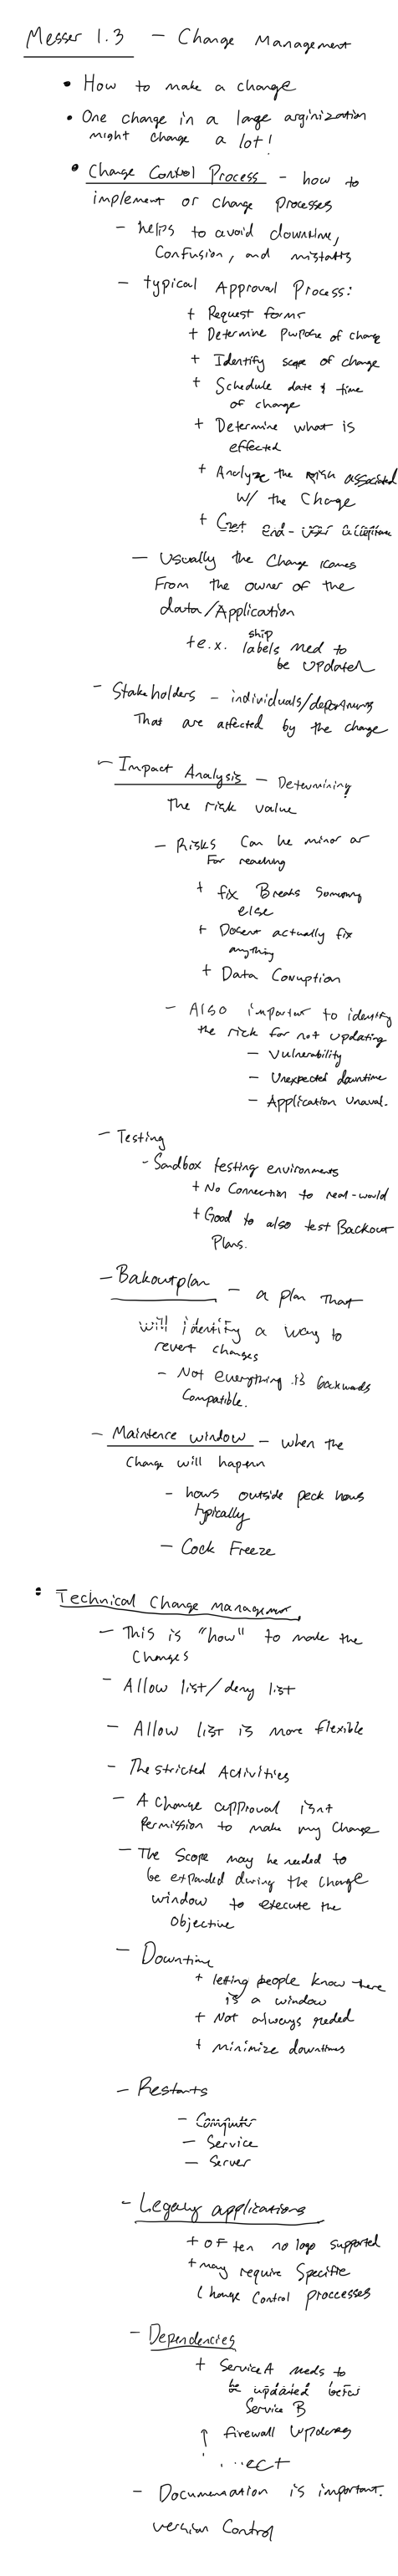 Messer 1.3 – Change Management
• How to make a change
• One change in a large arginization
might change a lot!
• Change Control Process – how to
implement or change processes
– helps to avoid downtime,
Confusion, and mistakes
– typical Approval Process:
+ Request forms
+ Determine Purpose of change
+ Identify scope of change
+ Schedule date & time
of change
+ Determine what is
effected
+ Analyze the risk associated
w/ the Change
+ Get end-user acceptance
– Usually the Change comes
From the owner of the
data/Application
+ e.x. ship
labels need to
be updated
– Stakeholders – individuals/departments
That are affected by the change
– Impact Analysis – Determining
The risk value
– Risks Can be minor or
Far reaching
+ fix Breaks Something
else
+ Doesnt actually fix
anything
+ Data Corruption
– Also important to identify
the risk for not updating
– Vulnerability
– Unexpected downtime
– Application Unaval.
– Testing
– Sandbox testing environments
+ No Connection to real-world
+ Good to also test Backout
Plans.
– Bakoutplan – a plan that
will identify a way to
revert changes
– Not everything is backwards
Compatible.
– Maintence window – when the
Change will happen
– hours outside peak hours
typically
– Freeze
• Technical Change Management
– This is "how" to make the
Changes
– Allow list/deny list
– Allow list is more flexible
– Activities
– A Change approval isnt
Permission to make any Change
– The Scope may be needed to
be expanded during the change
window to execute the
Objective
– Downtime
+ letting people know there
is a window
+ Not always needed
+ minimize downtimes
– Restarts
– Computer
– Service
– Server
– Legacy applications
+ often no supported
+ may require Specific
Change Control proccesses
– Dependencies
+ Service A needs to
be updated before
Service B
↑ firewall updates
...ect
– Documenation is important.
version Control